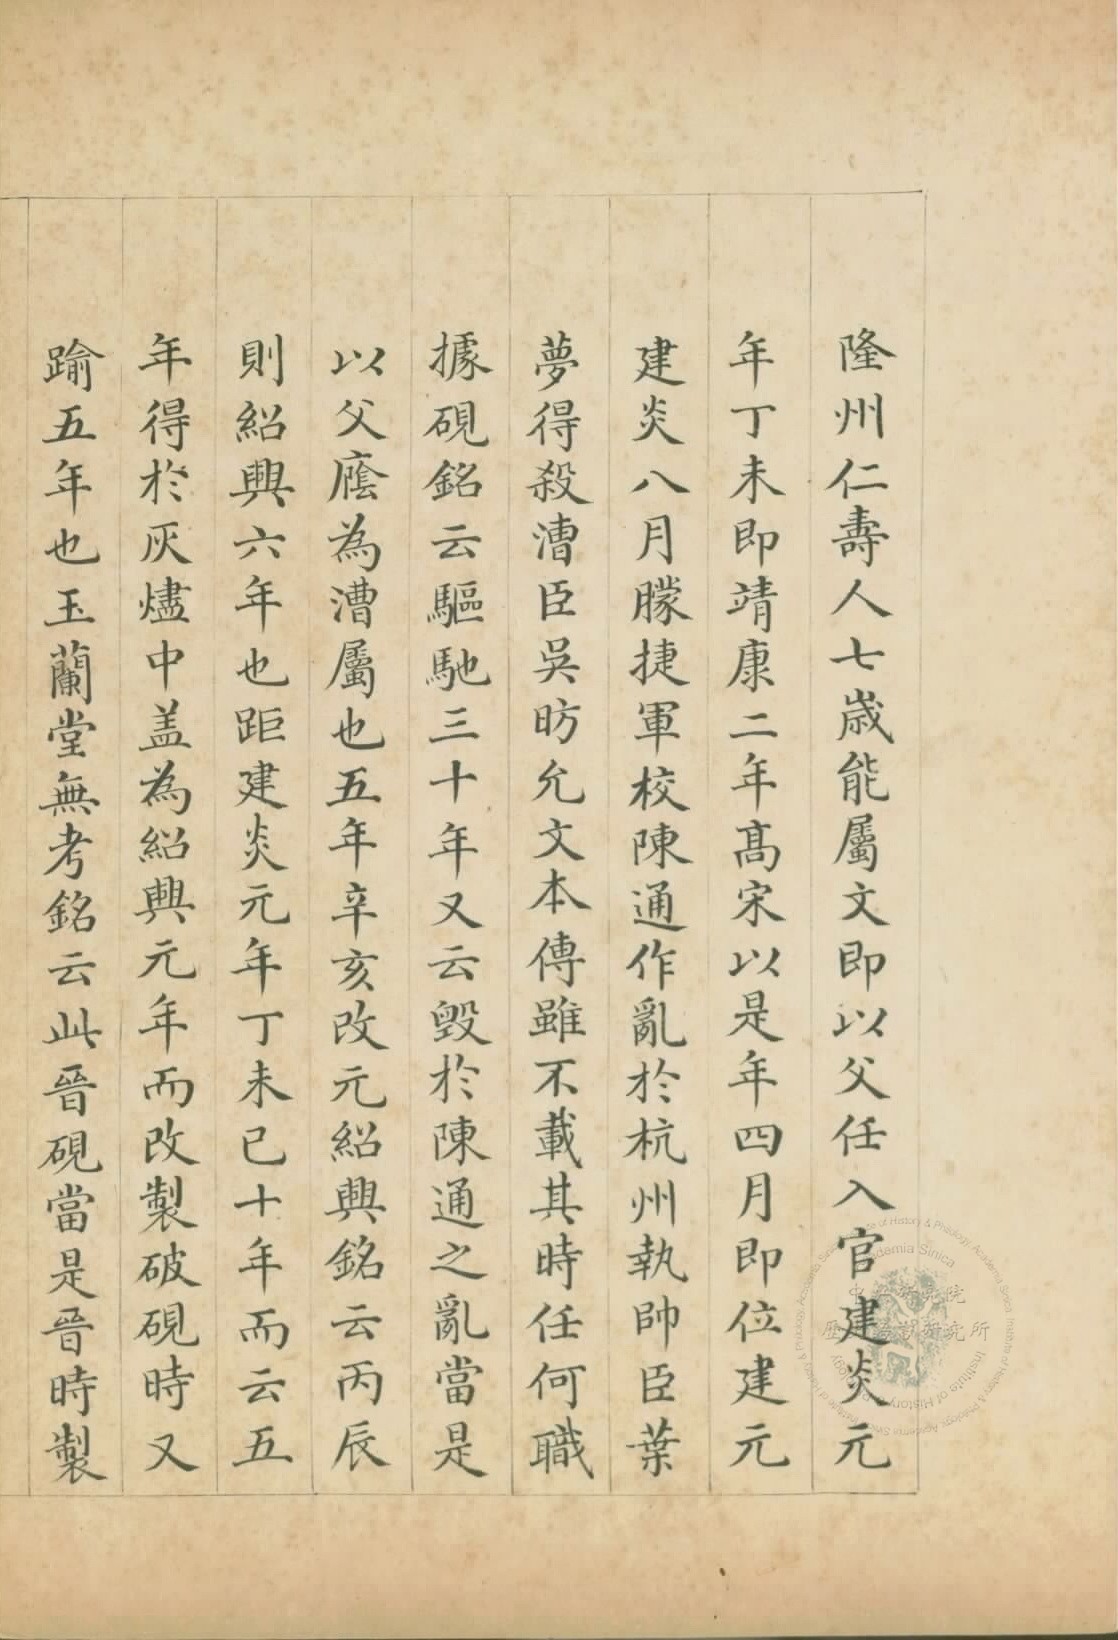 隆州仁壽人七歲能屬文即以父任入官建炎元
年丁未即靖康二年髙宋以是年四月即位建元
建炎八月朦捷軍校陳通作亂於杭州執帥臣葉
夢得殺漕臣吳昉允文本傳雖不載其時任何職
據硯銘云驅馳三十年又云毀於陳通之亂當是
以父廕為漕屬也五年辛亥改元紹興銘云丙辰
則紹興六年也距建炎元年丁未已十年而云五
年得於灰燼中盖為紹興元年而改製破硯時又
踰五年也玉蘭堂無考銘云此晉硯當是晉時製
中央研究院
歷史語言研究所
Institute of History & Philology, Academia Sinica